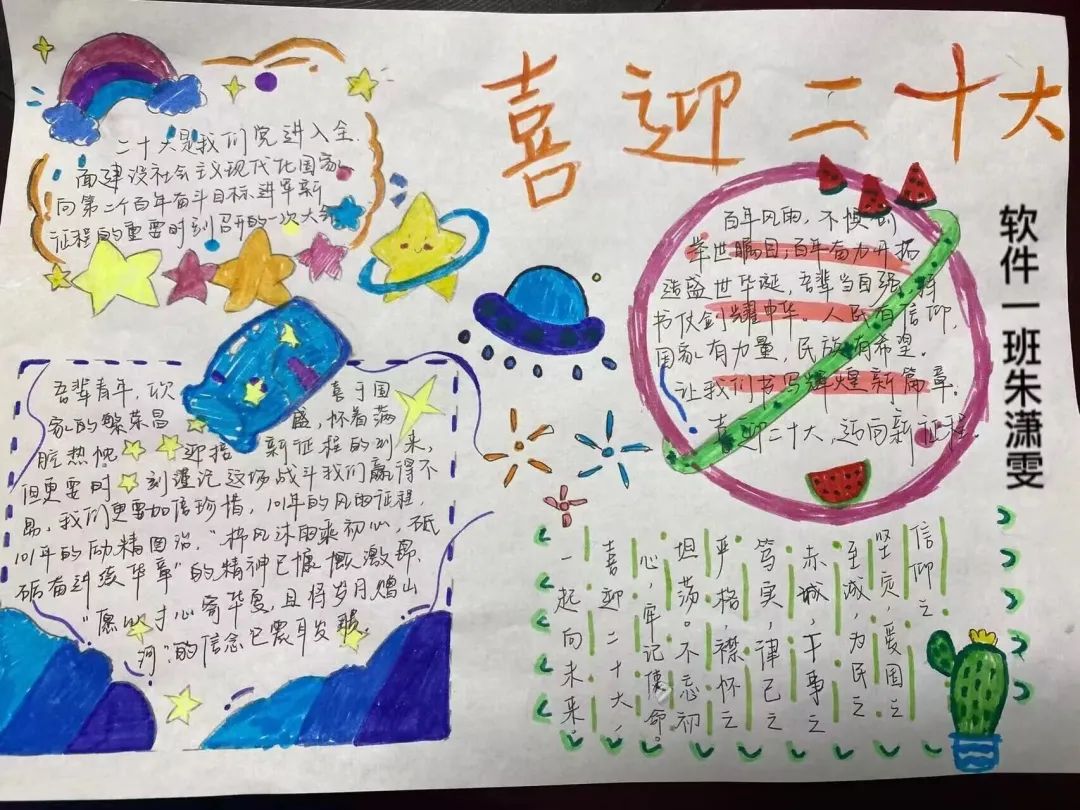 喜迎二十大
二十大是我们党进入全
面建设社会主义现代化国家
向第二个百年奋斗目标进军新
征程的重要时刻召开的一次大会
百年风雨，不惧
举世瞩目，百年奋力开拓
造盛世华诞，吾辈当自强，将
书仗剑耀中华。人民有信仰，
国家有力量，民族有希望。
让我们书写辉煌新篇章。
喜迎二十大，迈向新征程。
软件一班朱潇雯
吾辈青年，欣喜于国
家的繁荣昌盛，怀着满
腔热忱迎接新征程的到来，
但更要时刻谨记这场战斗我们赢得不
易，我们更要加倍珍惜，101年的风雨征程，
101年的励精图治，“栉风沐雨秉初心，砥
砺奋进续华章”的精神已慷慨激昂，
“愿以寸心寄华夏，且将岁月赠山
河”的信念已震耳发聩
信仰之
坚贞，爱国之
至诚，为民之
赤诚，干事之
笃实，律己之
严格，襟怀之
坦荡。不忘初
心，牢记使命。
喜迎二十大，
一起向未来。